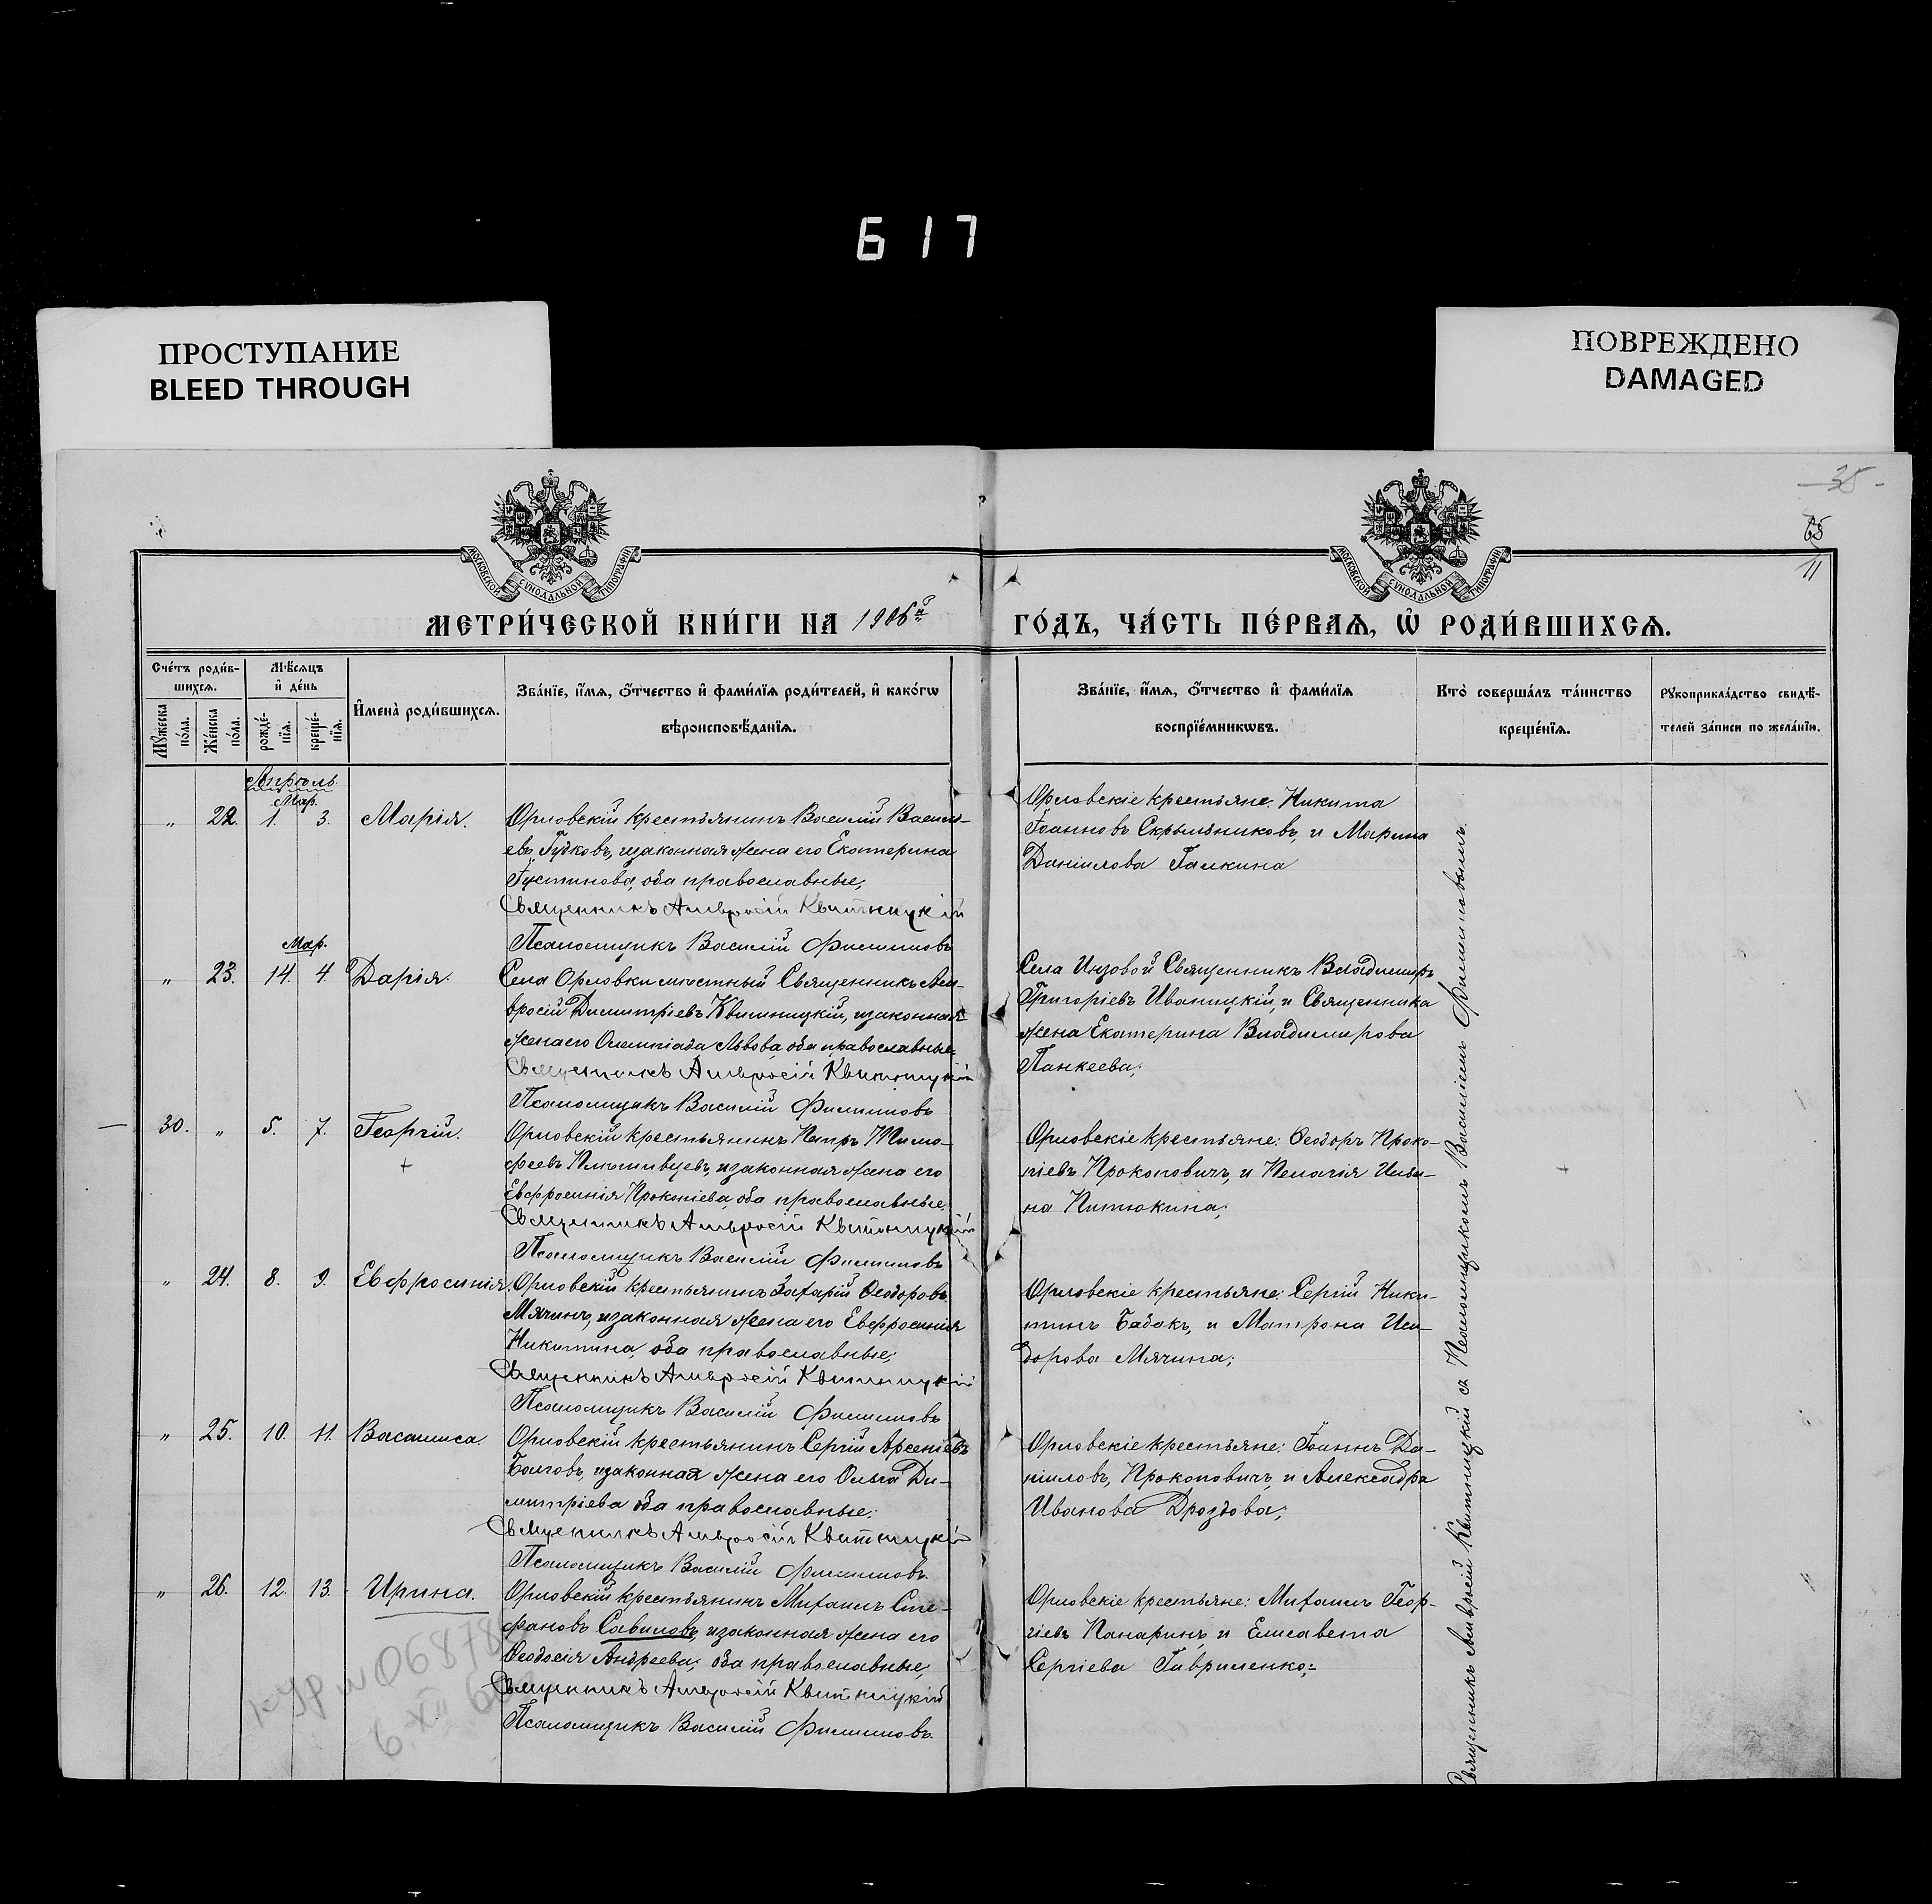 617
ПРОСТУПАНИЕ
BLEED THROUGH
ПОВРЕЖДЕНО
DAMAGED
35
65
11
МОСКОВСКОЙ СѴНОДАЛЬНОЙ ТИПОГРАФІИ
МОСКОВСКОЙ СѴНОДАЛЬНОЙ ТИПОГРАФІИ
МЕТРИ́ЧЕСКОЙ КНИ́ГИ НА 1906й
ГО́ДЪ, ЧА́СТЬ ПЕ́РВАѦ, Ѡ҆ РОДИ́ВШИХСѦ.
Сче́тъ роди́в-
шихсѧ.
Мꙋ́жеска
по́ла.
Же́нска
по́ла.
Мѣ́сѧцъ
и҆ де́нь
рожде́-
нїѧ.
креще́-
нїѧ.
И҆мена̀ роди́вшихсѧ.
Зва́нїе, и҆́мѧ, ѻ҆́тчество и҆ фами́лїѧ роди́телей, и҆ како́гѡ
вѣроисповѣ́данїѧ.
Зва́нїе, и҆́мѧ, ѻ҆́тчество и҆ фами́лїѧ
воспрїе́мникѡвъ.
Кто̀ соверша́лъ та́инство
креще́нїѧ.
Рꙋкоприкла́дство свидѣ́-
телей за́писи по жела́нїю.
Апрѣль.
Мар.
„ 22. 1. 3. Марія.
Орловскій крестьянинъ Василій Василь-
евъ Гудковъ, и законная жена его Екатерина
Іустинова, оба православные;
Священникъ Амвросій Квитницкій
Псаломщикъ Василій Филиповъ
Орловскіе крестьяне: Никита
Іоанновъ Скрыльниковъ, и Марина
Даніилова Галкина
Мар.
„ 23. 14. 4. Дарія.
Села Орловки мѣстный Священникъ Ам-
вросій Димитріевъ Квитницкій, и законная
жена его Олимпіада Львова, оба православные.
Священникъ Амвросій Квитницкій
Псаломщикъ Василій Филиповъ
Села Инзовой Священникъ Владиміръ
Григоріевъ Иваницкій, и Священника
жена Екатерина Владимірова
Панкеева;
30. „ 5. 7. Георгій.
Орловскій крестьянинъ Петръ Тимо-
феевъ и законная жена его
Евфросинія Прокопіева, оба православные.
Священникъ Амвросій Квитницкій
Псаломщикъ Василій Филиповъ
Орловскіе крестьяне: Ѳеодоръ Проко-
піевъ Прокоповичъ, и Пелагія Ильи-
на Питюкина;
„ 24. 8. 9. Евфросинія.
Орловскій крестьянинъ Захарій Ѳеодоровъ
Мячинъ, и законная жена его Евфросинія
Никитина, оба православные;
Священникъ Амвросій Квитницкій
Псаломщикъ Василій Филиповъ
Орловскіе крестьяне: Сергій Ники-
тинъ Бабакъ, и Матрона Иси-
дорова Мячина;
„ 25. 10. 11. Василиса.
Орловскій крестьянинъ Сергій Арсеніевъ
Болговъ, и законная жена его Ольга Ди-
митріева оба православные;
Священникъ Амвросій Квитницкій
Псаломщикъ Василій Филиповъ.
Орловскіе крестьяне: Іоаннъ Да-
ніиловъ, Прокоповичъ, и Александра
Иванова Дроздова;
„ 26. 12. 13. Ирина.
Орловскій крестьянинъ Михаилъ Сте-
фановъ Савиловъ, и законная жена его
Ѳеодосія Андреева; оба православные,
Священникъ Амвросій Квитницкій
Псаломщикъ Василій Филиповъ.
Орловскіе крестьяне: Михаилъ Геор-
гіевъ Панаринъ, и Елисавета
Сергіева Гавриленко;
Священникъ Амвросій Квитницкій съ Псаломщикомъ Василіемъ Филиповымъ.